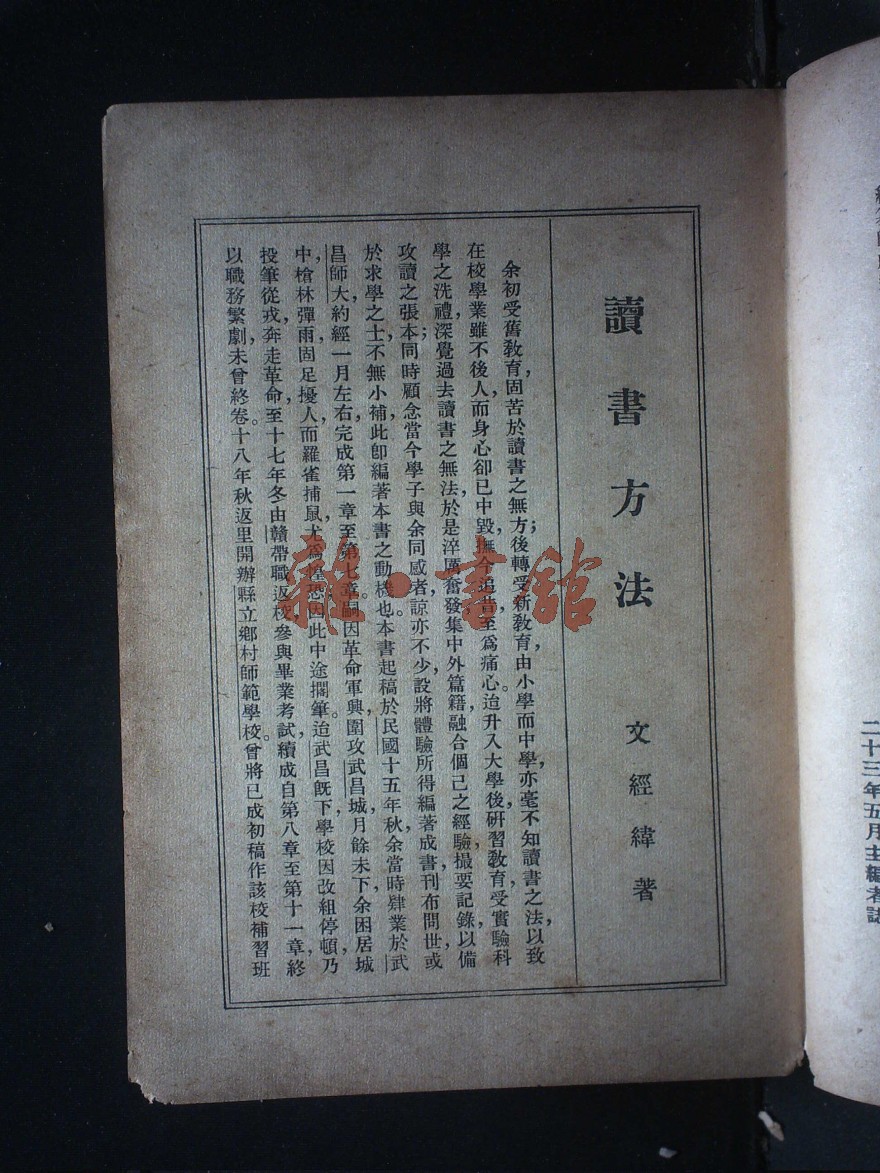 讀書方法
文經緯著
余初受舊教育，固苦於讀書之無方；後轉受新教育，由小學而中學，亦毫不知讀書之法，以致
在校學業雖不後人，而身心卻已中毀，撫今追昔，至爲痛心。迨升入大學後，研習教育，受實驗科
學之洗禮，深覺過去讀書之無法，於是淬厲奮發，集中外篇籍，融合個己之經驗，撮要記錄，以備
攻讀之張本；同時顧念當今學子，與余同感者，諒亦不少，設將體驗所得，編著成書，刊布問世，或
於求學之士，不無小補，此卽編著本書之動機也。本書起稿於民國十五年秋，余當時肄業於武
昌師大，約經一月左右，完成第一章至第七章。嗣因革命軍興，圍攻武昌城，月餘未下，余困居城
中，槍林彈雨，固足擾人，而羅雀捕鼠，尤爲惶恐，因此中途擱筆。迨武昌旣下，學校因改組停頓，乃
投筆從戎，奔走革命，至十七年冬，由贛帶職返校，參與畢業考試，續成自第八章至第十一章，終
以職務繁劇，未曾終卷。十八年秋，返里開辦縣立鄉村師範學校。曾將已成初稿，作該校補習班
二十三年五月主編者誌
雜·書館